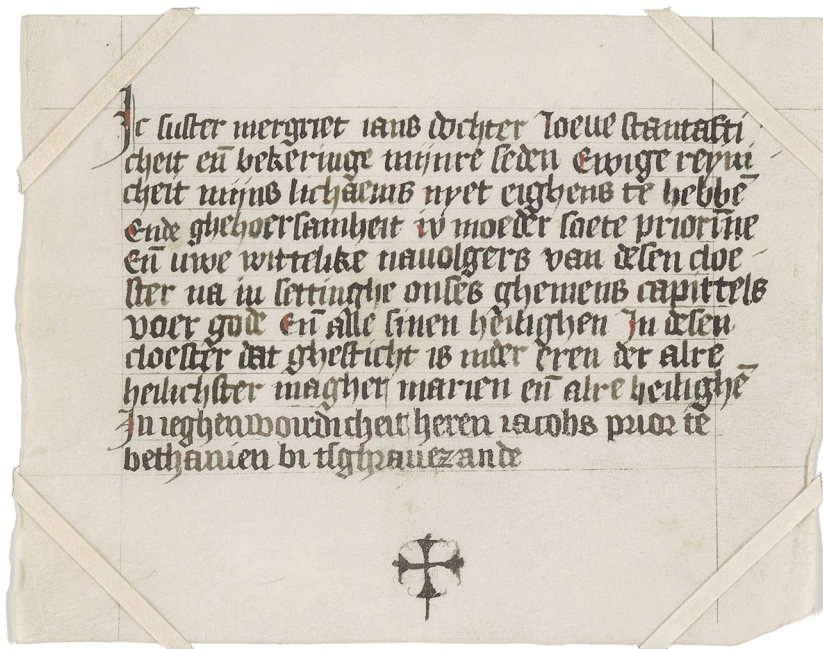 Ic suster mergriet ians dochter Loeue stantafti
cheit eñ bekeringe mijnre seden Ewige reyni
cheit mijns lichaems nyet eighens te hebbē
Ende ghehoersamheit iv moeder soete priorīne
Eñ uwe wittelike nauolgers van desen cloe
ster na in settinghe onses ghemeens capittels
voer gode Eñ alle sinen heilighen In desen
cloester dat ghesticht is inder eren der alre
heilichster maghet marien eñ alre heilighē
In ieghenwoirdicheit heren iacobs prior te
bethanien bi tsghrauezande